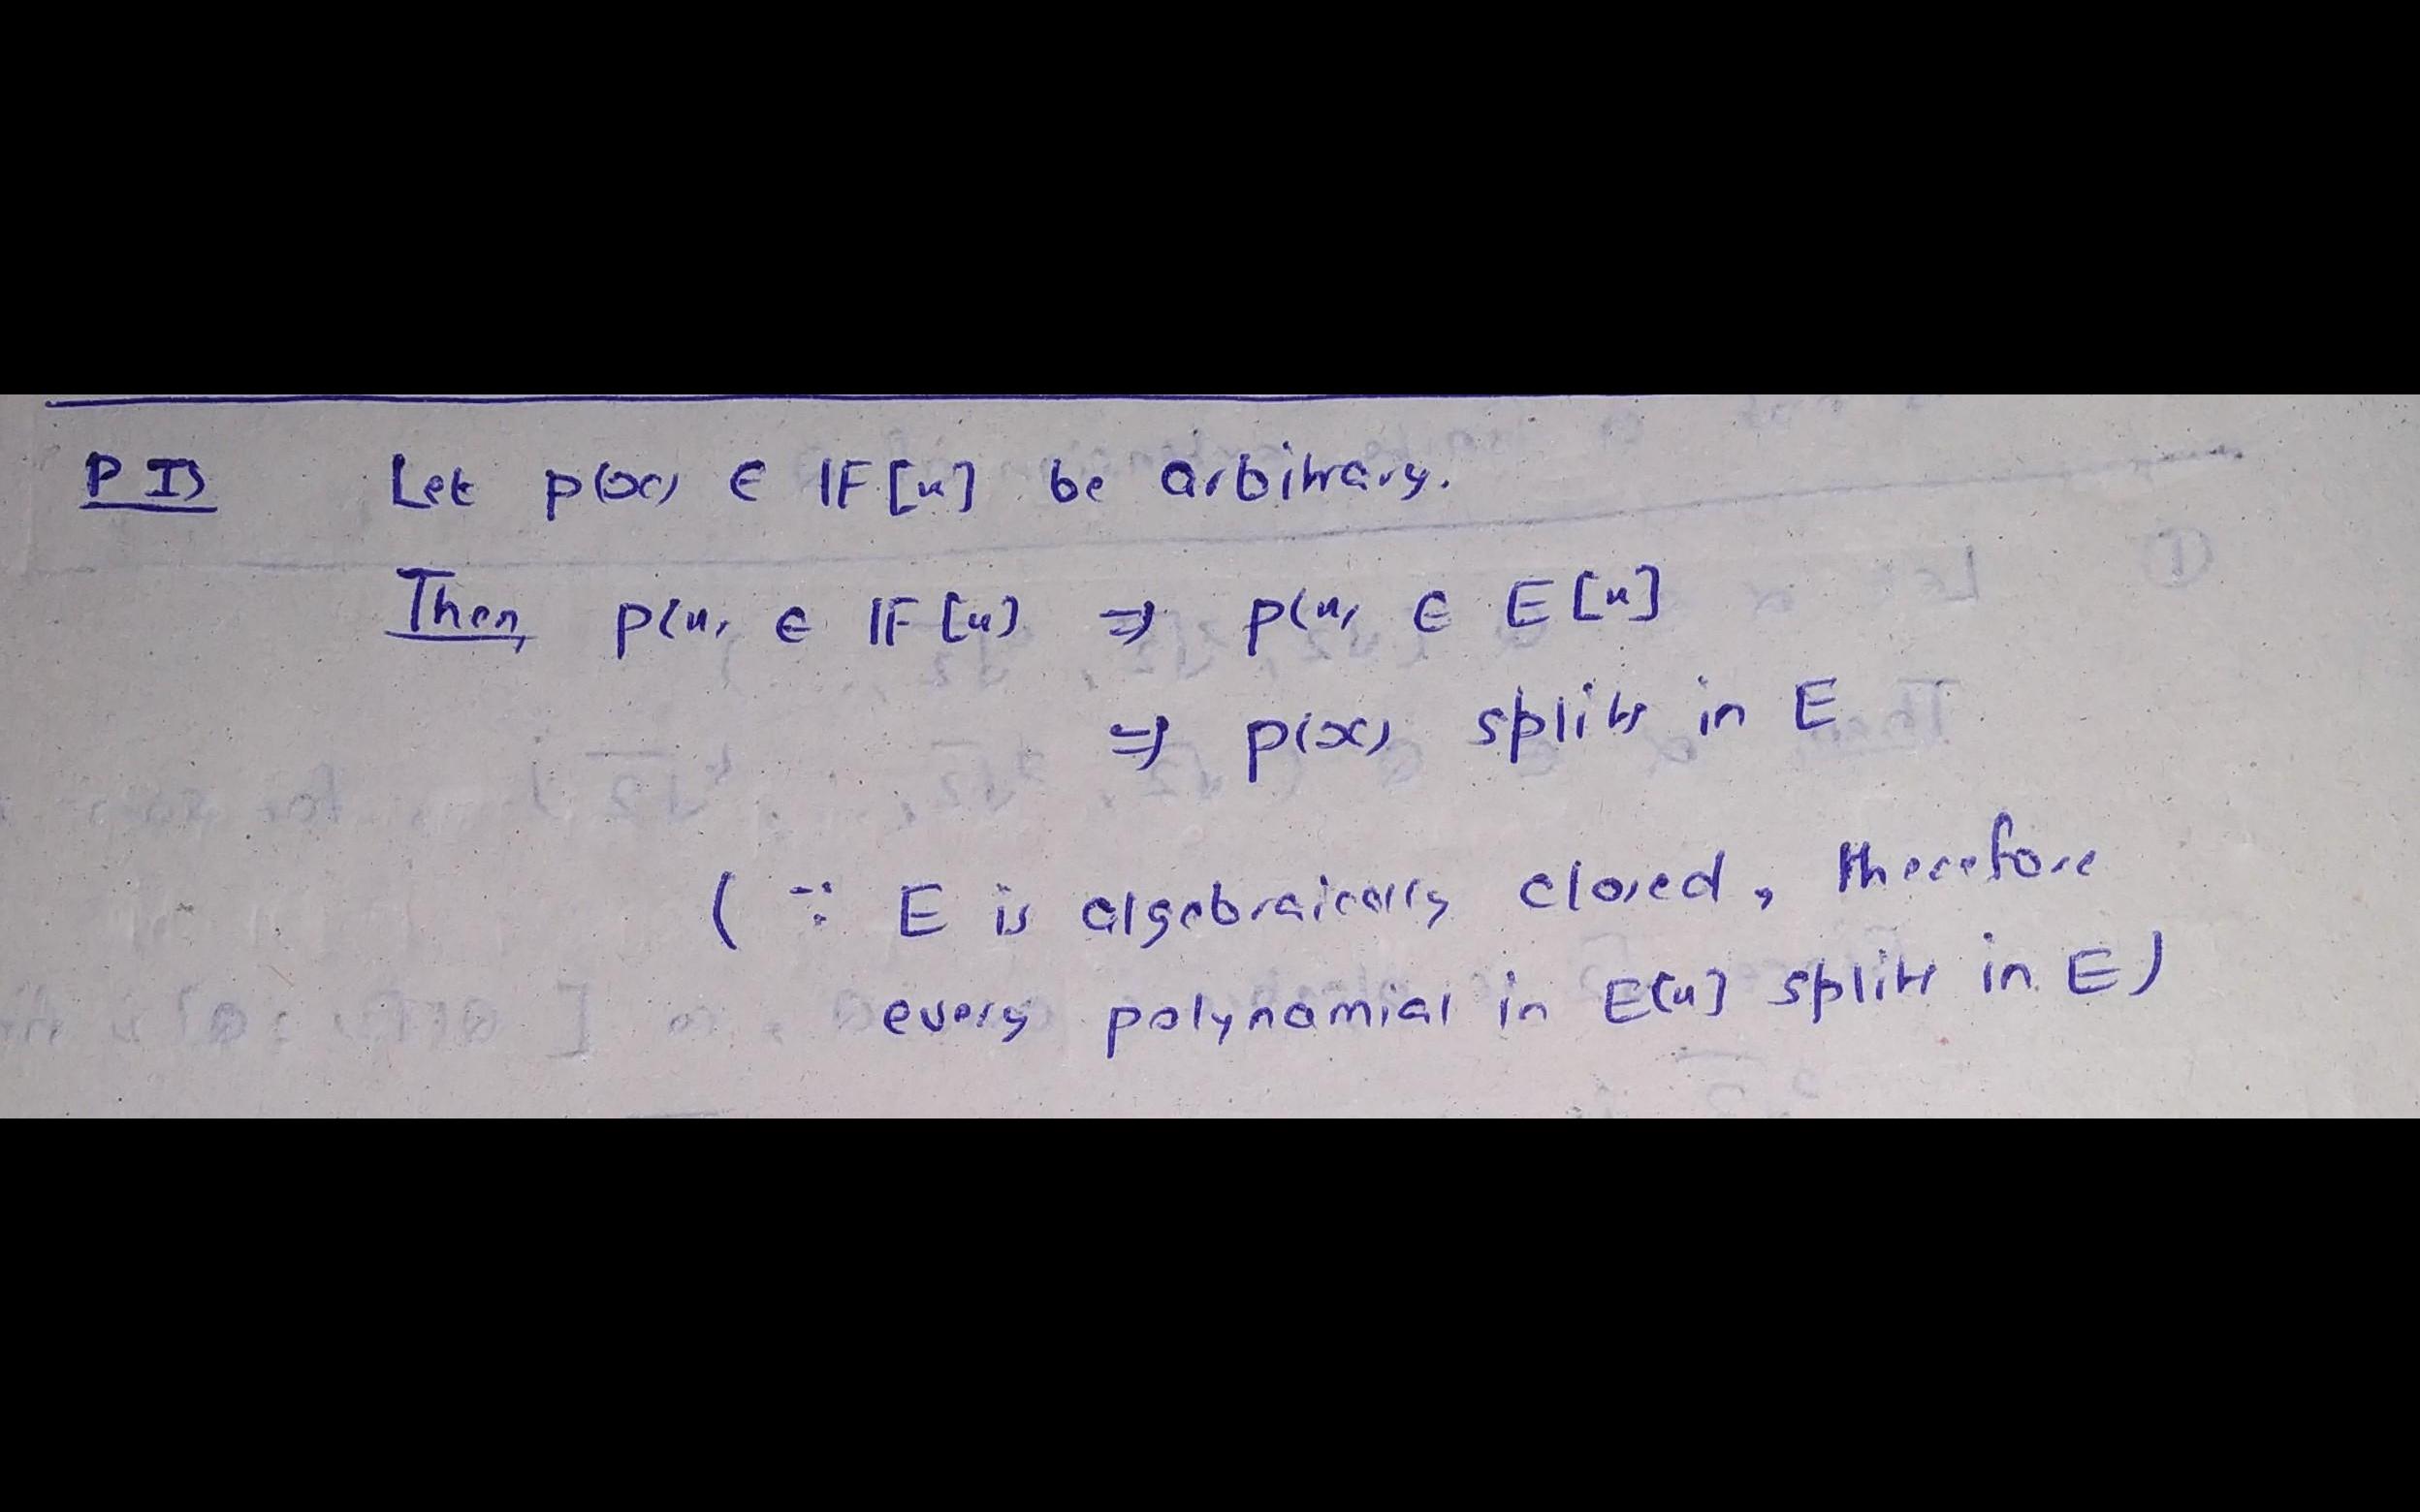 P I) Let p(x) ∈ IF[x] be arbitrary.
Then, p(x) ∈ IF[x] ⇒ p(x) ∈ E[x]
⇒ p(x) splits in E
( ∵ E is algebraically closed, therefore
every polynomial in E[x] splits in E)